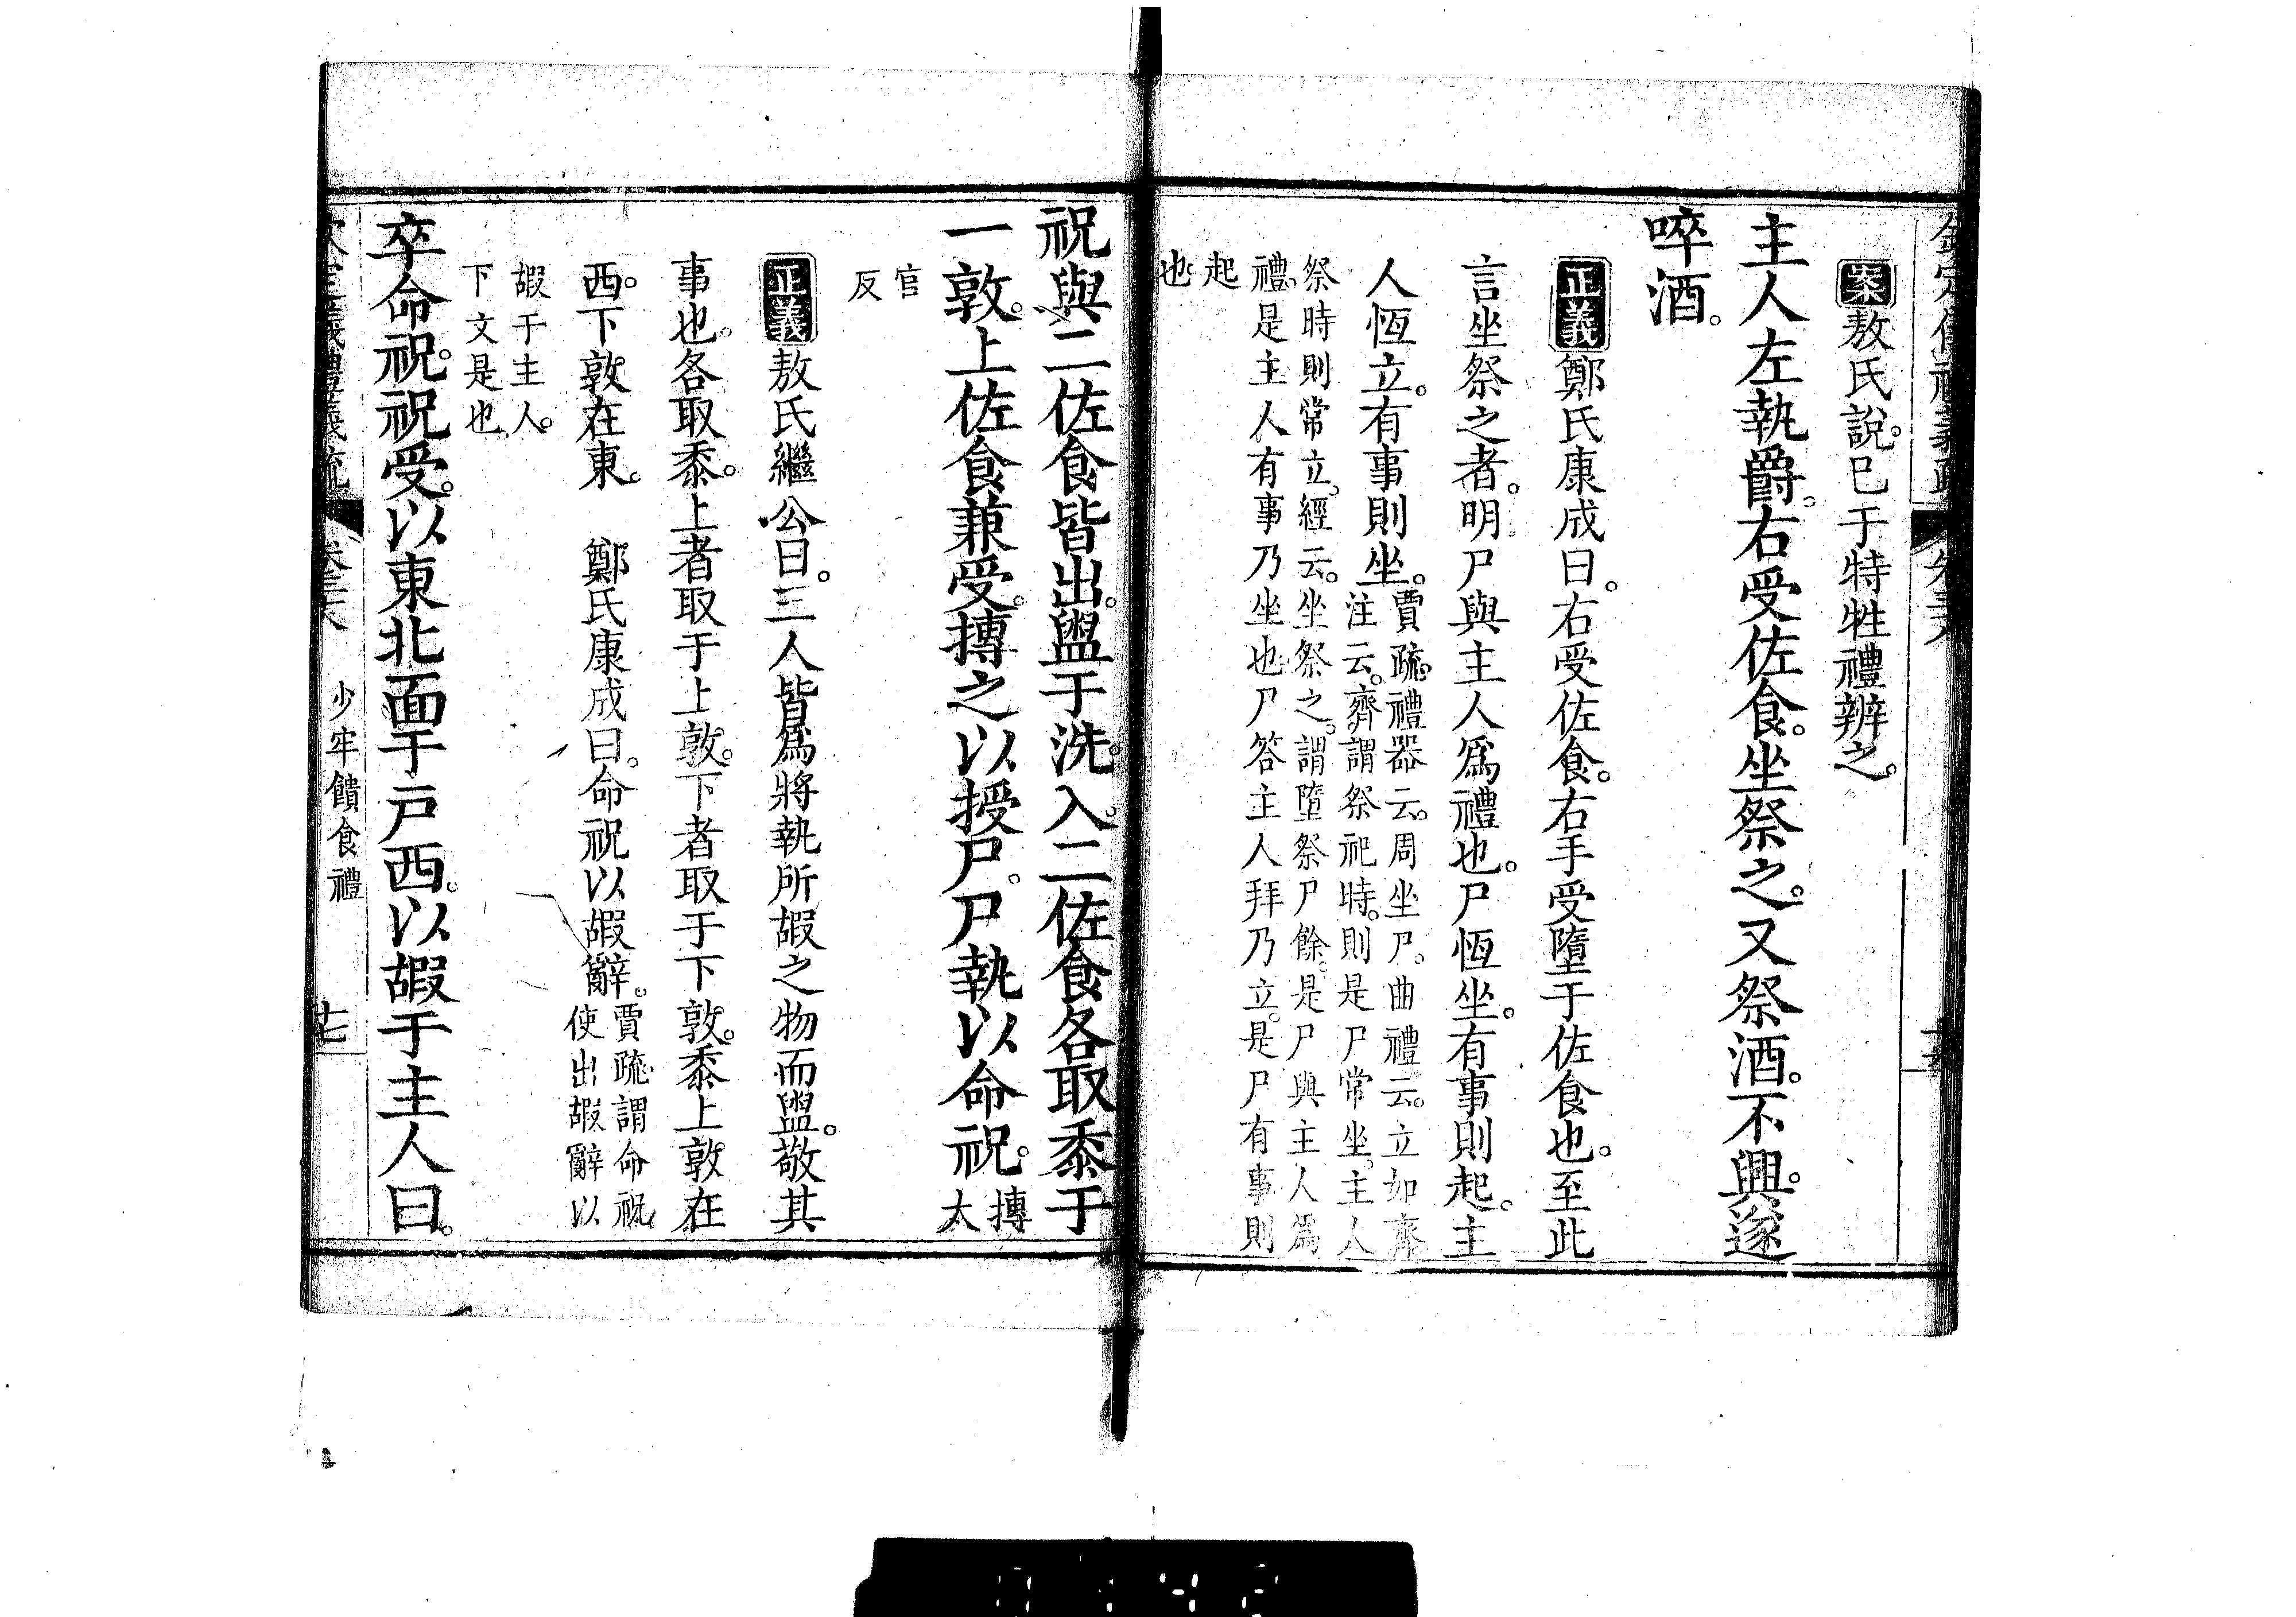 案敖氏說已于特牲禮辨之。
主人左執爵。右受佐食。坐祭之。又祭酒。不興。遂
啐酒。
正義鄭氏康成曰。右受佐食。右手受墮于佐食也。至此
言坐祭之者。明尸與主人爲禮也。尸恆坐。有事則起。主
人恆立。有事則坐。
賈疏。禮器云。周坐尸。曲禮云。立如齊。
注云。齊謂祭祀時。則是尸常坐。主人
祭時則常立。經云。坐祭之。謂墮祭尸餘。是尸與主人爲
禮。是主人有事乃坐也。尸答主人拜乃立。是尸有事則
起
也。
祝與二佐食皆出。盥于洗。入。二佐食各取黍于
一敦。上佐食兼受。摶之以授尸。尸執以命祝。
摶
太
官
反
正義敖氏繼公曰。三人皆爲將執所嘏之物而盥。敬其
事也。各取黍。上者取于上敦。下者取于下敦。黍上敦在
西。下敦在東。 鄭氏康成曰。命祝以嘏辭。
賈疏。謂命祝
使出嘏辭以
嘏于主人。
下文是也。
卒命祝。祝受。以東北面于戶西。以嘏于主人曰。
少牢饋食禮